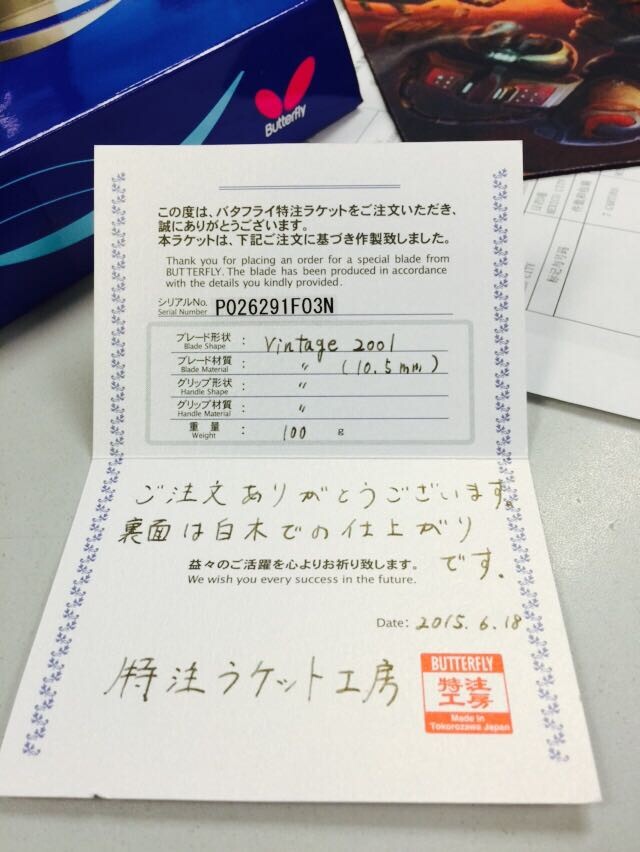 Butterfly
この度は、バタフライ特注ラケットをご注文いただき、
誠にありがとうございます。
本ラケットは、下記ご注文に基づき作製致しました。
Thank you for placing an order for a special blade from
BUTTERFLY. The blade has been produced in accordance
with the details you kindly provided.
シリアルNo.
Serial Number
P026291F03N
ブレード形状
Blade Shape
: Vintage 2001
ブレード材質
Blade Material
: 〃 (10.5mm)
グリップ形状
Handle Shape
: 〃
グリップ材質
Handle Material
: 〃
重量
Weight
: 100 g
ご注文ありがとうございます。
裏面は白木での仕上がり
です.
益々のご活躍を心よりお祈り致します。
We wish you every success in the future.
Date: 2015.6.18
特注ラケット工房
BUTTERFLY
特注
工房
Made in
Tokorozawa Japan
标记与号码